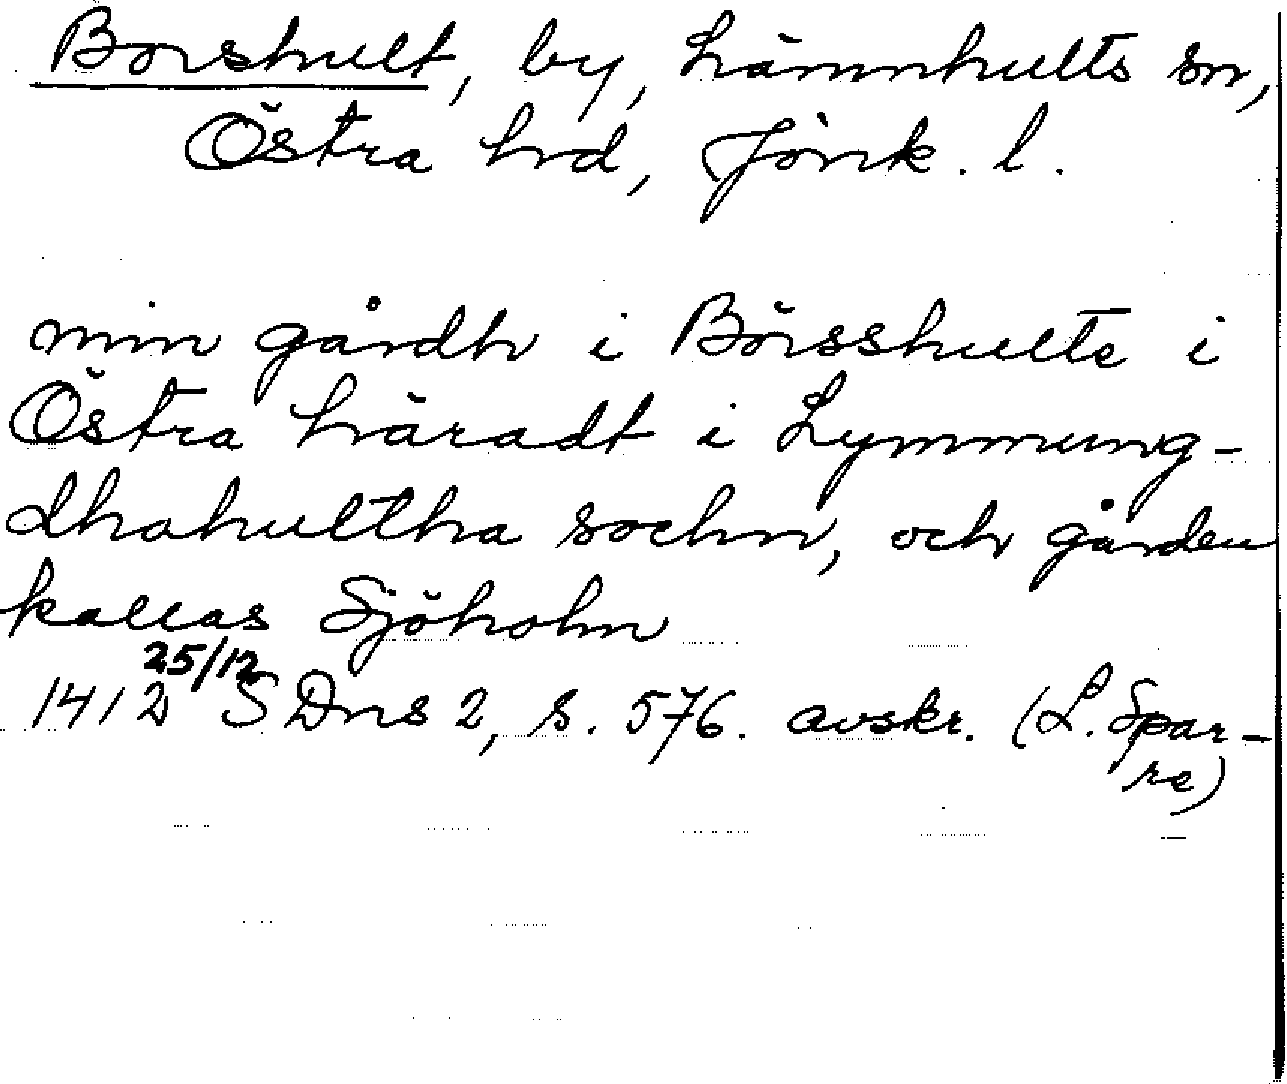 Borshult, by, Lännhults sn,
Östra hrd, Jönk. l.
min gårdh i Börsshulte i
Östra häradt i Lymmung-
dhahultha sochn, och gården
kallas Sjöholm
1412 25/12 SDns 2, s. 576. avskr. (L. Spar-
re)